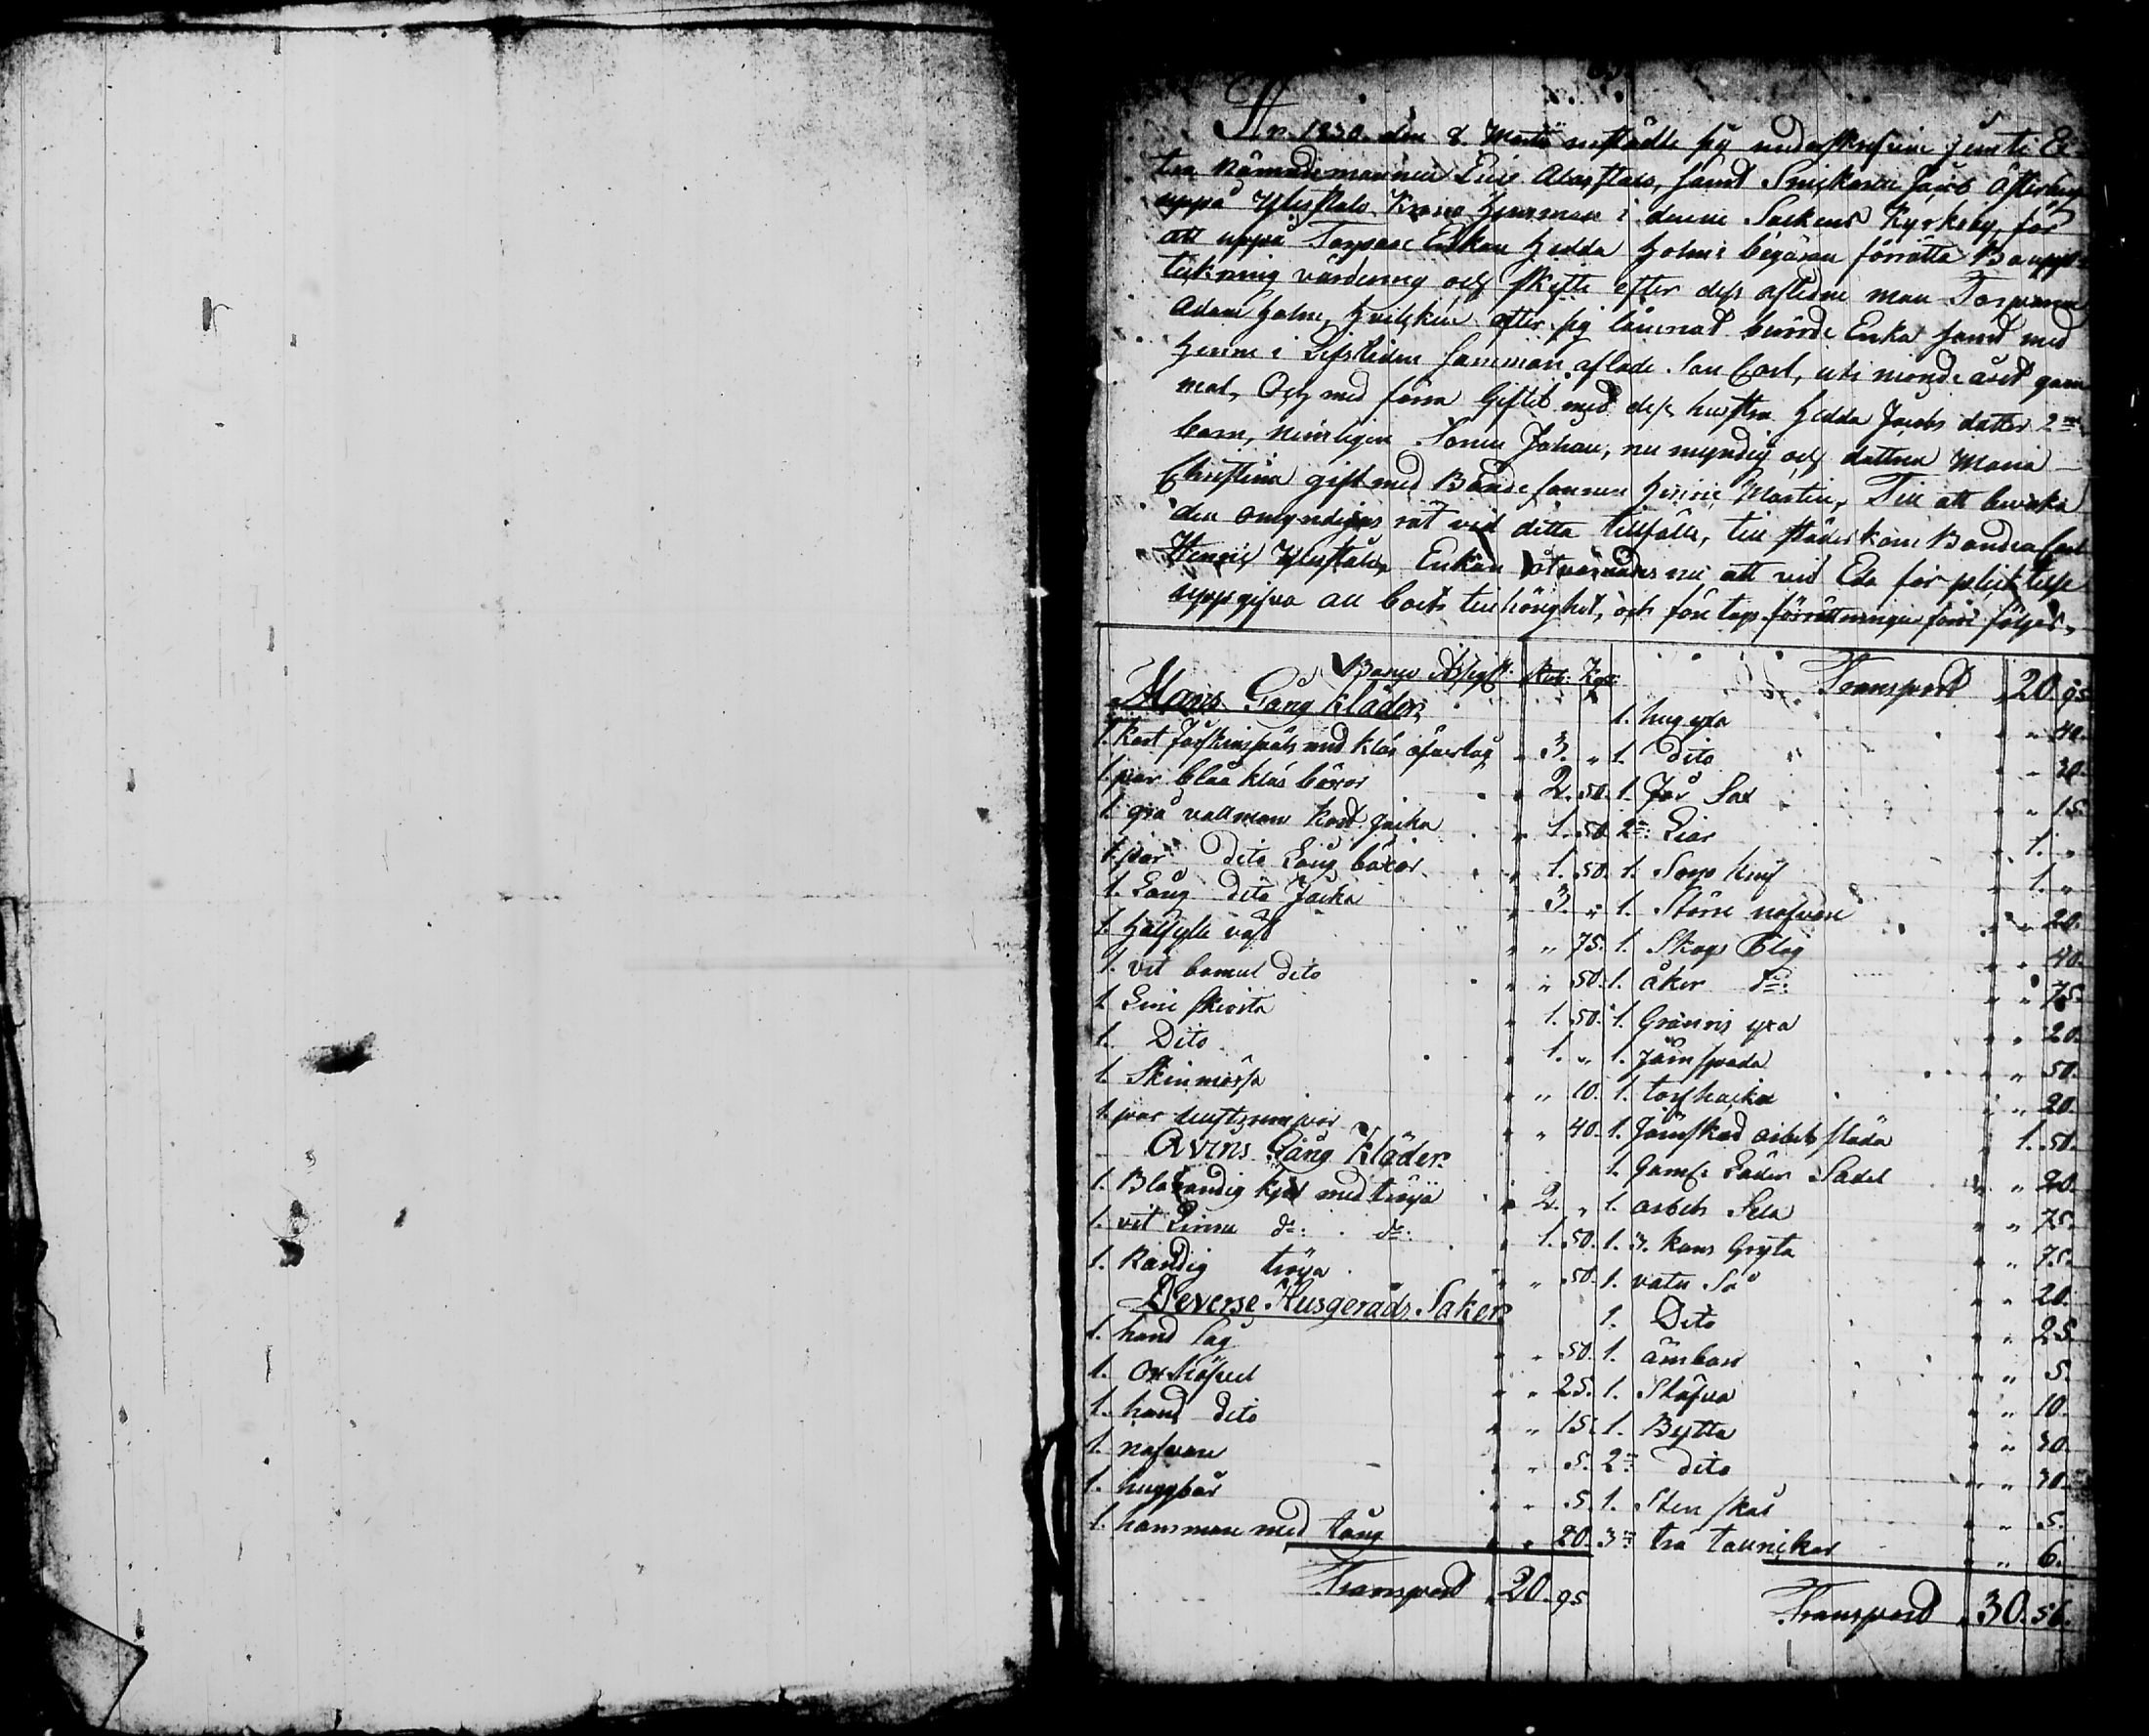 An. 1830. den 8. Martii instälte sig underskrifvene jemte Ex-
tra Nämndemannen Eric Alasstalo, samt Snickaren Jacob Österberg
uppå Ylistalo Krono Hemman i denne Sockens Kyrkoby, för
att uppå Torpare Enkan Hedda Holms begäran förrätta Boupp-
tekning värdering och skifte efter dess afledne man Torparen
Adam Holm, hvilken efter sig lämnat berörde Enka samt med
henne i Lifstiden samman aflade Son Carl, uti nionde året gam-
mal, Och med förra Giftet med dess hustru Hedda Jacobs dotter 2ne
barn, nemligen Sonen Johan, nu myndig och dottren Maria
Christina gift med Bondesonnen Henric Martin, Till att bevaka
den omyndigas rät vid detta tillfälle, till städes kom Bonden Carl
Henric Ylistalo, Enkan åtvarnades nu att vid Eds för pliktelse
uppgifva all boets tillhörighet, och före togs förrättningen som följer,
Banco Assigt. Rub: Kop:
Mans Gång kläder,
1. kort Fårskinspäls med kläs öfverlag " 3. "
1. par blåa kläs böxor " 2. 50.
1. grå vallmans kort Jacka " 1. 50.
1. par dito Lång böxor " 1. 50.
1. Lång dito Jacka " 3. "
1. halfylle väst " " 75.
1. vit bomul dito " " 50.
1. Linn skiorta " 1. 50.
1. Dito " 1. "
1. Skinmössa " " 10.
1. par " " 40.
Qvins Gång Kläder
1. Blårandig kjol med tröja " 2. "
1. vit Linne do: do: " 1. 50.
1. Randig tröja " " 50.
Deverse Husgeråds Saker
1. hand såg " " 50.
1. Oxhöfvel " " 25.
1. hand dito " " 15.
1. nafvare " " 5.
1. huggbår " " 5.
1. hammare med tång " " 20.
Transport " 20. 95
Transport " 20. 95
1. hug yxa " " 40.
1. dito " " 30.
1. Får Sax " " 15.
2ne: Liar " 1. "
1. knif " 1. "
1. Större nafvare " " 20.
1. Skogs Plog " " 40.
1. åker do: " " 75.
1. Granris yxa " " 20.
1. Järn spada " " 50.
1. torfhacka " " 20.
1. Järnskod arbets släda " 1. 50.
1. Gaml: Läder Sadel " " 20.
1. arbets Sela " " 75.
1. 3. kans Gryta " " 75.
1. vatu Så " " 20.
1. Dito " " 25.
1. ämbar " " 5.
1. Stäfva " " 10.
1. Bytta " " 30.
2ne: dito " " 30.
1. Sten skål " " 5.
3ne: trä talrickar " " 6.
Transport " 30. 56.